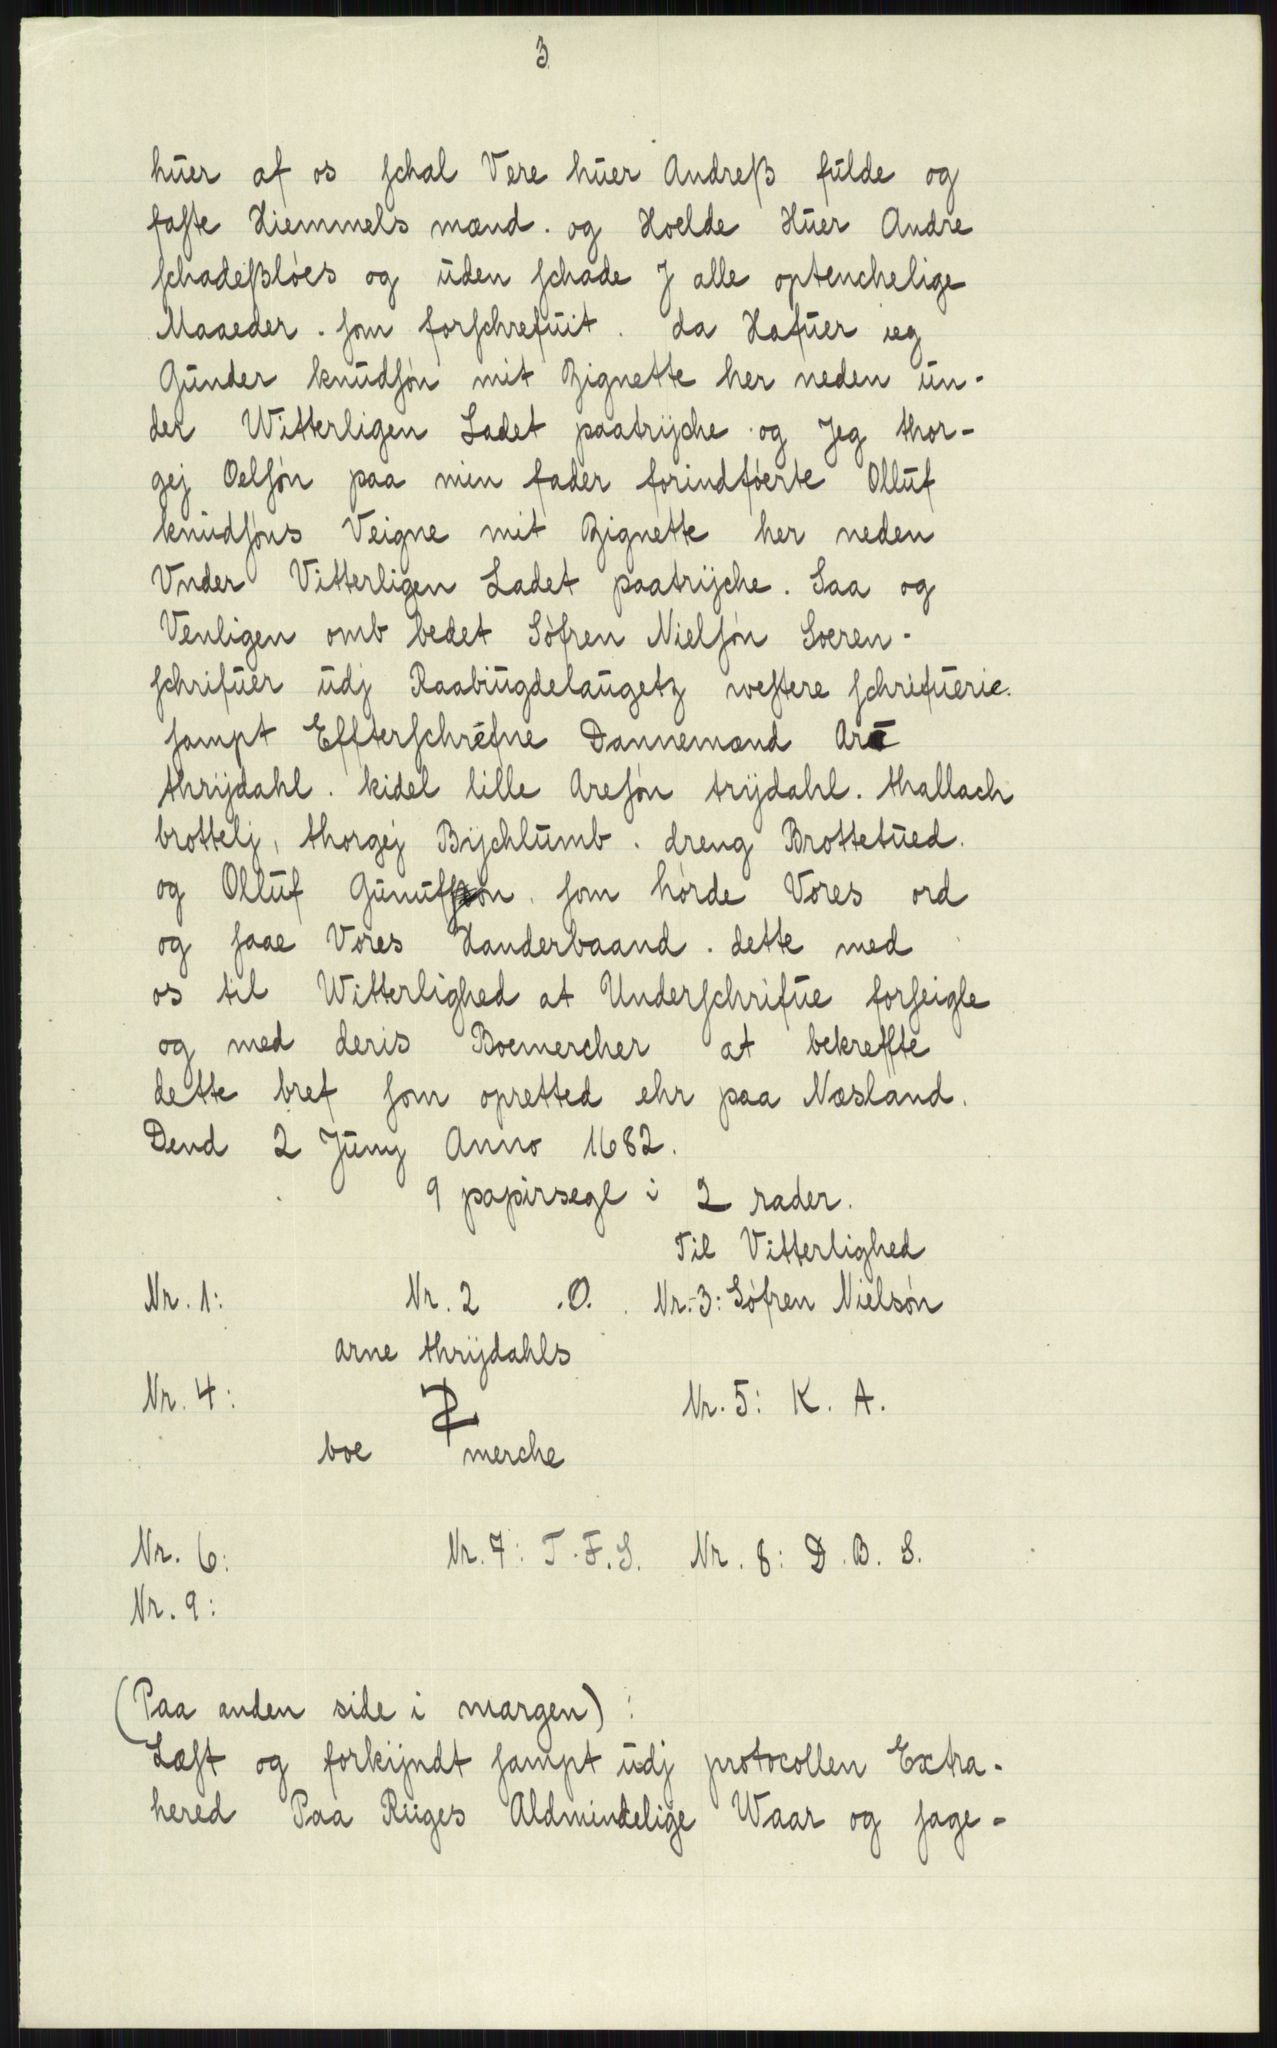 3
huer af os schal Vere huer Andreß fulde og
faste Hiemmels mænd. og Hoelde Huer Andre
schadeßlóes og uden schade J alle optenchelige
Maaeder. som forschrefuit. da Hafuer ieg
Gunder knudsón mit Zignette her neden un-
der Witterligen Ladet paatrÿche og Jeg thor-
gej Oelsón paa min fader forindfóerte Olluf
knudsóns Veigne mit Zignette her neden
Vnder Vitterligen Ladet paatrÿche. Saa og
Venligen omb bedet Sófren Nielsón Soeren-
schrifuer udj Raabiugdelaugetz westere schrifuerie.
sampt Effterschréfne Dannemænd
thrÿdahl. kidel lille Aresón trÿdahl. thallach
brottelj, thorgej Bÿchlumb. dreng Brottetued.
og Olluf som hórde Vores ord
og saae Vores Handerbaand. dette med
os til Witterlighed at Underschrifue forseigle
og med deris Boemercher at bekreffte
dette bref som opretted ehr paa Næsland.
Dend 2 Juny Anno 1682.
9 papirsegl i 2 rader.
Til Vitterlighed
Nr. 1: Nr. 2 .O. Nr. 3: Sófren Nielsón
arne thrÿdahls
Nr. 4: Nr. 5: K. A.
boe merche
Nr. 6: Nr. 7: T. F. S. Nr. 8: D. B. S.
Nr. 9:
(Paa anden side i margen):
Læst og forkÿndt sampt udj protocollen Extra-
hered Paa Riiges Aldmindelige Waar og sage-